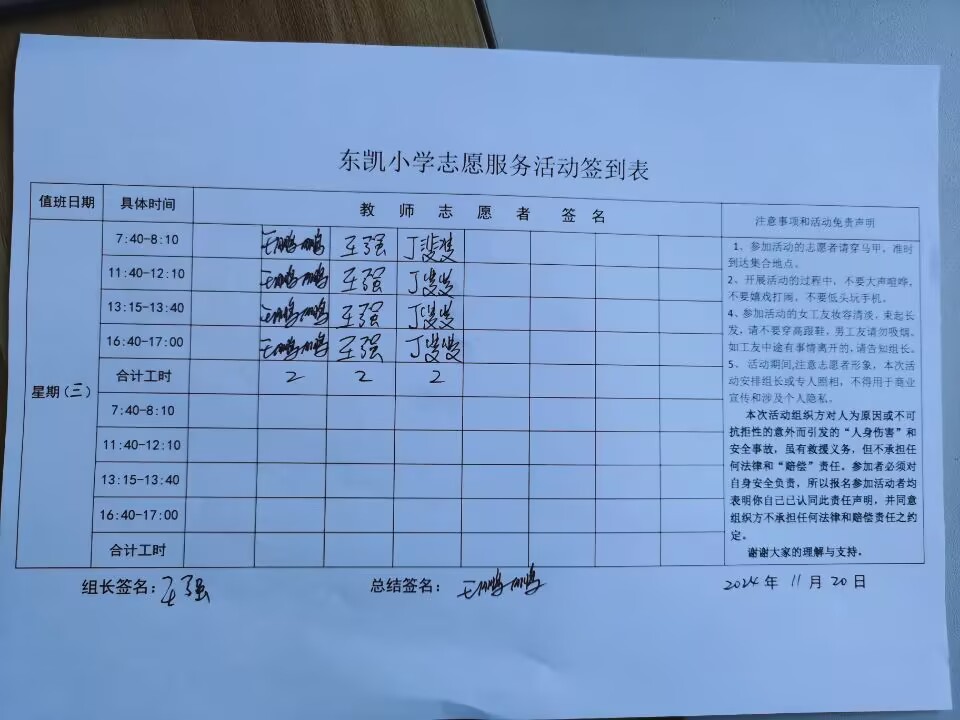 东凯小学志愿服务活动签到表
值班日期 具体时间 教师志愿者签名 注意事项和活动免责声明
星期(三)
7:40-8:10 王鹏鹏 王强 丁斐斐
11:40-12:10 王鹏鹏 王强
13:15-13:40 王鹏鹏 王强
16:40-17:00 王鹏鹏 王强
合计工时 2 2 2
7:40-8:10
11:40-12:10
13:15-13:40
16:40-17:00
合计工时
1、参加活动的志愿者请穿马甲，准时
到达集合地点。
2、开展活动的过程中，不要大声喧哗，
不要嬉戏打闹，不要低头玩手机。
4、参加活动的女工友妆容清淡，束起长
发，请不要穿高跟鞋，男工友请勿吸烟。
如工友中途有事情离开的，请告知组长。
5、活动期间,注意志愿者形象，本次活
动安排组长或专人照相，不得用于商业
宣传和涉及个人隐私。
本次活动组织方对人为原因或不可
抗拒性的意外而引发的“人身伤害”和
安全事故，虽有救援义务，但不承担任
何法律和“赔偿”责任。参加者必须对
自身安全负责，所以报名参加活动者均
表明你自己已认同此责任声明，并同意
组织方不承担任何法律和赔偿责任之约
定。
谢谢大家的理解与支持。
组长签名：王强 总结签名：王鹏鹏 2024年 11月 20日